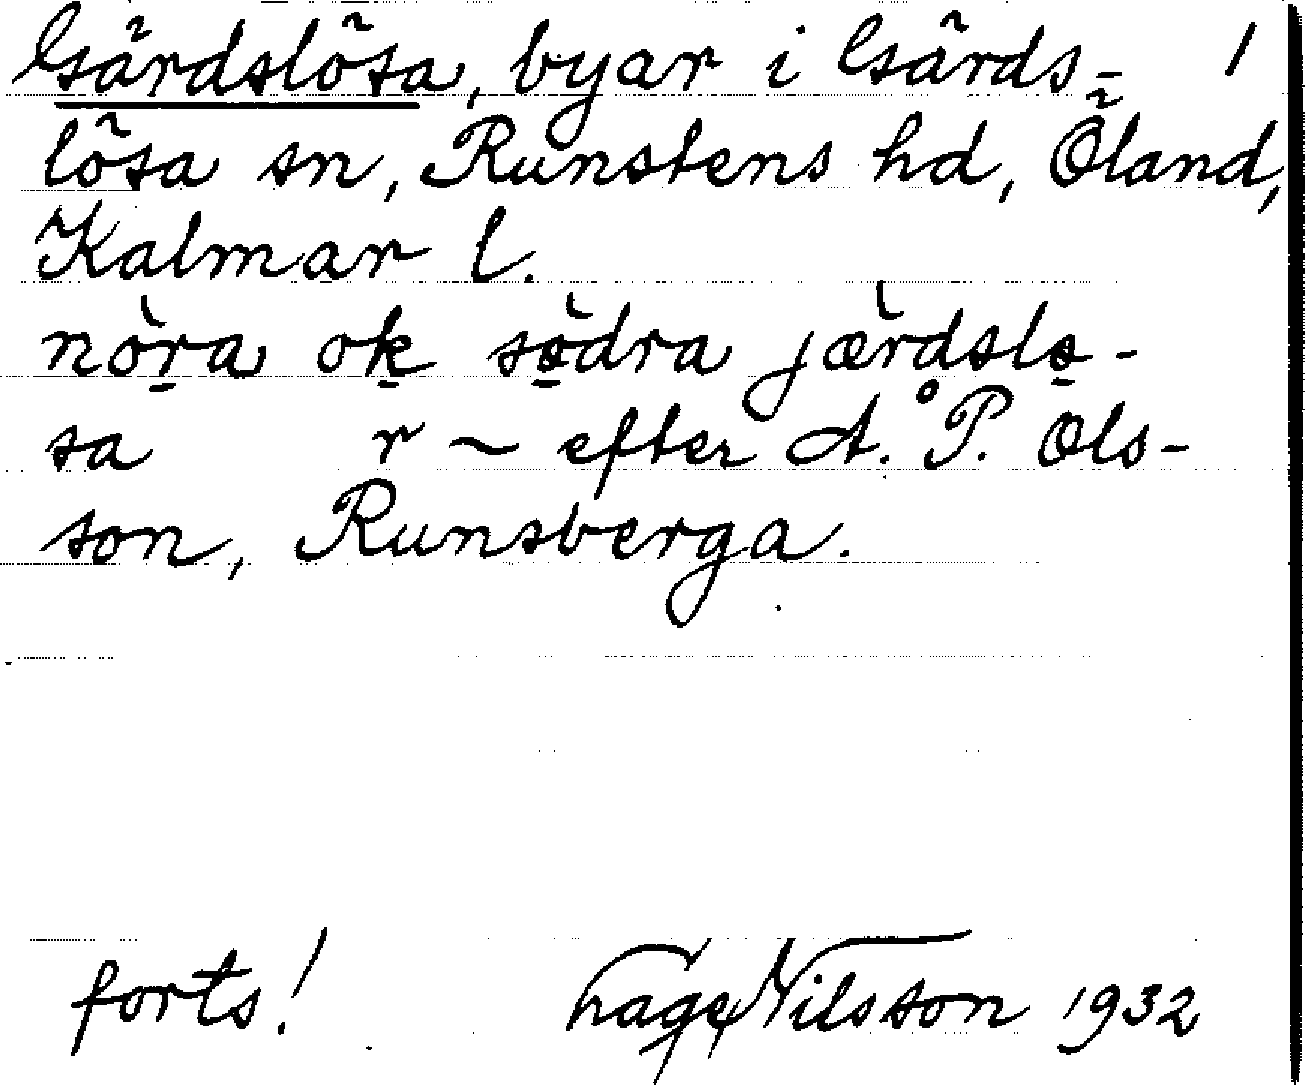 Gärdslösa, byar i Gärds- 1
lösa sn, Runstens hd, Öland,
Kalmar l.
nòṟa oḵ sö̀dra jæ̀rdslo̱-
sa r ~ efter A. P. Ols-
son, Runsberga.
forts! Tage Nilsson 1932